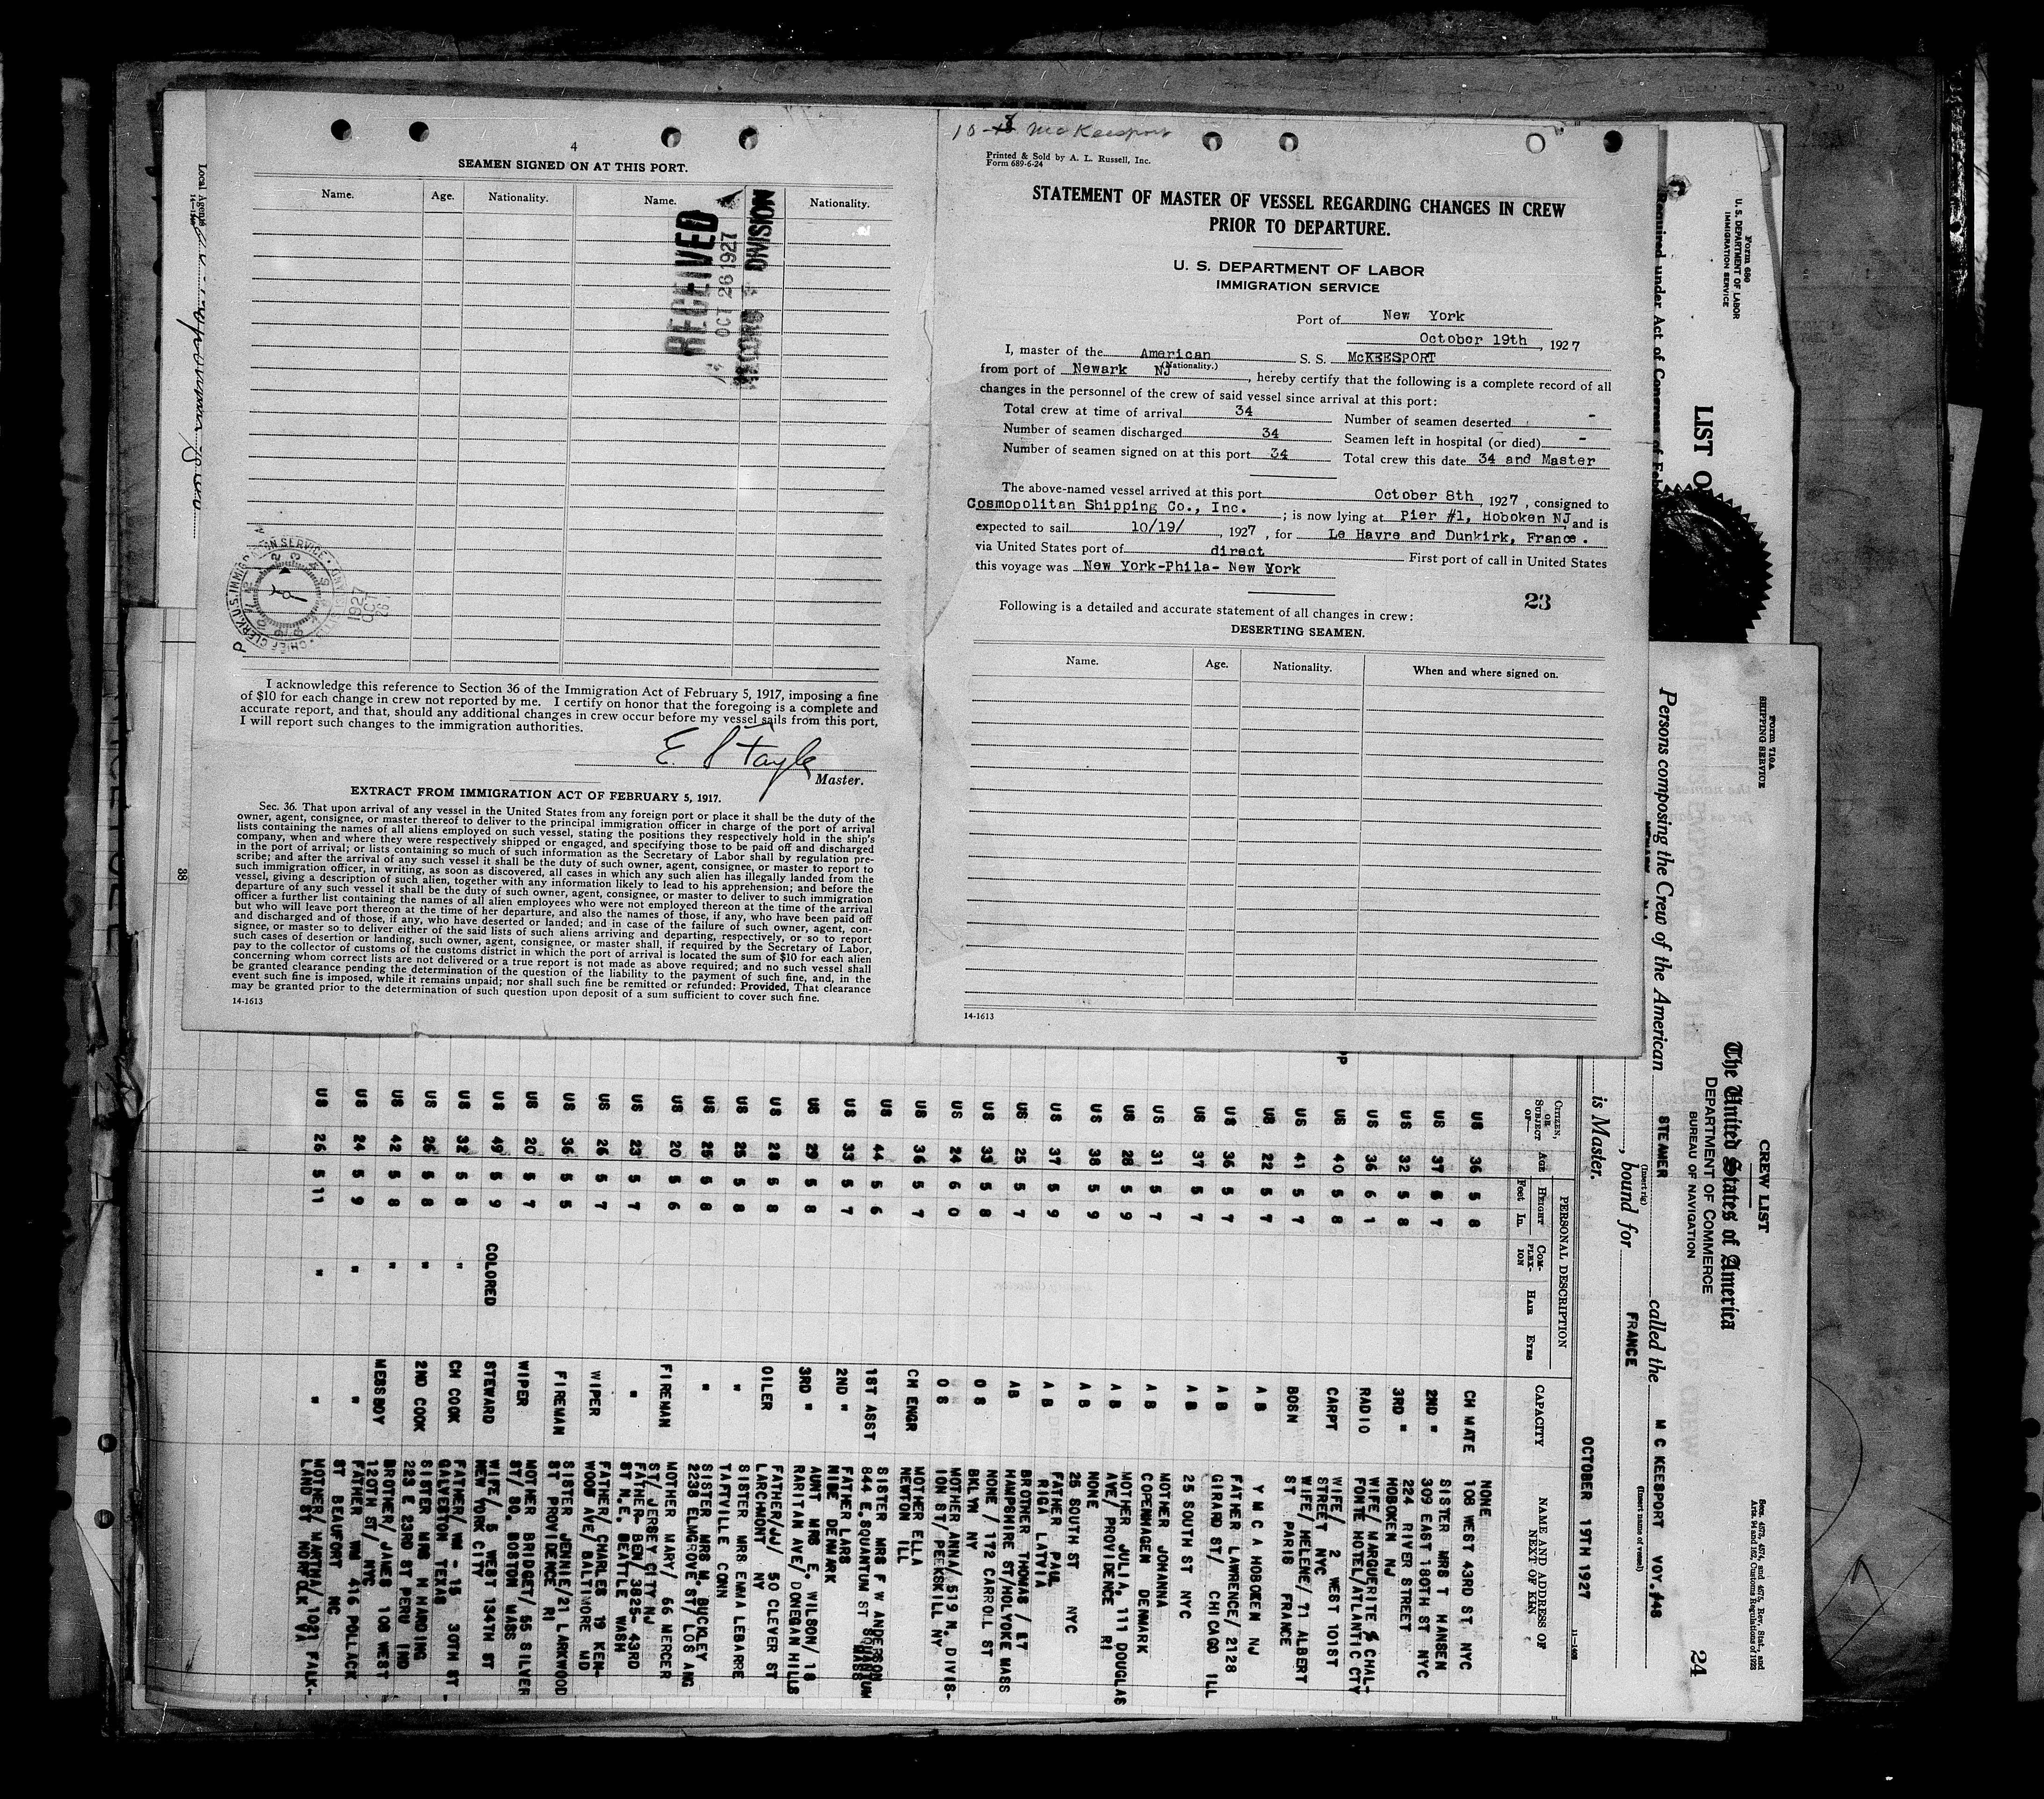 4
SEAMEN SIGNED ON AT THIS PORT.
Name. Age. Nationality. Name. Nationality.
RECEIVED
OCT 26 1927
RECORD DIVISION
Local Agents
1927
OCT
26
I acknowledge this reference to Section 36 of the Immigration Act of February 5, 1917, imposing a fine
of $10 for each change in crew not reported by me. I certify on honor that the foregoing is a complete and
accurate report, and that, should any additional changes in crew occur before my vessel sails from this port,
I will report such changes to the immigration authorities.
Master.
EXTRACT FROM IMMIGRATION ACT OF FEBRUARY 5, 1917.
Sec. 36. That upon arrival of any vessel in the United States from any foreign port or place it shall be the duty of the
owner, agent, consignee, or master thereof to deliver to the principal immigration officer in charge of the port of arrival
lists containing the names of all aliens employed on such vessel, stating the positions they respectively hold in the ship's
company, when and where they were respectively shipped or engaged, and specifying those to be paid off and discharged
in the port of arrival; or lists containing so much of such information as the Secretary of Labor shall by regulation pre-
scribe; and after the arrival of any such vessel it shall be the duty of such owner, agent, consignee, or master to report to
such immigration officer, in writing, as soon as discovered, all cases in which any such alien has illegally landed from the
vessel, giving a description of such alien, together with any information likely to lead to his apprehension; and before the
departure of any such vessel it shall be the duty of such owner, agent, consignee, or master to deliver to such immigration
officer a further list containing the names of all alien employees who were not employed thereon at the time of the arrival
but who will leave port thereon at the time of her departure, and also the names of those, if any, who have been paid off
and discharged and of those, if any, who have deserted or landed; and in case of the failure of such owner, agent, con-
signee, or master so to deliver either of the said lists of such aliens arriving and departing, respectively, or so to report
such cases of desertion or landing, such owner, agent, consignee, or master shall, if required by the Secretary of Labor,
pay to the collector of customs of the customs district in which the port of arrival is located the sum of $10 for each alien
concerning whom correct lists are not delivered or a true report is not made as above required; and no such vessel shall
be granted clearance pending the determination of the question of the liability to the payment of such fine, and, in the
event such fine is imposed, while it remains unpaid; nor shall such fine be remitted or refunded: Provided, That clearance
may be granted prior to the determination of such question upon deposit of a sum sufficient to cover such fine.
14-1613
McKeesport
Printed & Sold by A. L. Russell, Inc.
Form 689-6-24
STATEMENT OF MASTER OF VESSEL REGARDING CHANGES IN CREW
PRIOR TO DEPARTURE.
U. S. DEPARTMENT OF LABOR
IMMIGRATION SERVICE
Port of New York
October 19th, 1927
I, master of the American S. S. McKEESPORT
(Nationality.)
from port of Newark NJ, hereby certify that the following is a complete record of all
changes in the personnel of the crew of said vessel since arrival at this port:
Total crew at time of arrival 34 Number of seamen deserted -
Number of seamen discharged 34 Seamen left in hospital (or died) -
Number of seamen signed on at this port 34 Total crew this date 34 and Master
The above-named vessel arrived at this port October 8th, 1927, consigned to
Cosmopolitan Shipping Co., Inc. ; is now lying at Pier #1, Hoboken NJ and is
expected to sail 10/19/, 1927, for Le Havre and Dunkirk, France.
via United States port of direct First port of call in United States
this voyage was New York-Phila- New York
23
Following is a detailed and accurate statement of all changes in crew:
DESERTING SEAMEN.
Name. Age. Nationality. When and where signed on.
14-1613
Form 689
U. S. DEPARTMENT OF LABOR
IMMIGRATION SERVICE
LIST O
Required under Act of Congress of Feb
Form 710A
SHIPPING SERVICE
CREW LIST
The United States of America
DEPARTMENT OF COMMERCE
BUREAU OF NAVIGATION
Secs. 4573, 4574, and 4575, Rev. Stat., and
Arts. 94 and 162, Customs Regulations of 1923
24
Persons composing the Crew of the American STEAMER called the MC KEESPORT VOY. #48
(Insert rig) (Insert name of vessel)
, bound for FRANCE
is Master. OCTOBER 19TH 1927
11-1408
PERSONAL DESCRIPTION
CITIZEN, OR SUBJECT OF— AGE HEIGHT Feet In. COMPLEXION HAIR EYES CAPACITY NAME AND ADDRESS OF NEXT OF KIN
NONE
US 36 5 8 CH MATE 108 WEST 43RD ST NYC
SISTER MRS T HANSEN
US 37 5 7 2ND " 309 EAST 180TH ST NYC
224 RIVER STREET
US 32 5 8 3RD " HOBOKEN NJ
WIFE/ MARGUERITE % CHAL-
US 36 6 1 RADIO FONTE HOTEL/ATLANTIC CTY
WIFE/ 2 WEST 101ST
US 40 5 8 CARPT STREET NYC
WIFE/ HELENE/ 71 ALBERT
US 41 5 7 BOSN ST PARIS FRANCE
US 22 5 7 A B Y M C A HOBOKEN NJ
FATHER LAWRENCE/ 2128
US 36 5 7 A B GIRARD ST/ CHICAGO ILL
US 37 5 7 A B 25 SOUTH ST NYC
MOTHER JOHANNA
US 31 5 7 A B COPENHAGEN DENMARK
MOTHER JULIA, 111 DOUGLAS
US 28 5 9 A B AVE/ PROVIDENCE RI
NONE
US 38 5 9 A B 25 SOUTH ST NYC
FATHER PAUL
US 37 5 9 A B RIGA LATVIA
BROTHER THOMAS / ET
US 25 5 7 AB HAMPSHIRE ST/HOLYOKE MASS
NONE / 172 CARROLL ST
US 33 5 8 O S BKLYN NY
MOTHER ANNA/ 519 N. DIVIS-
US 24 6 0 O S ION ST/ PEEKSKILL NY
MOTHER ELLA
US 36 5 7 CH ENGR NEWTON ILL
SISTER MRS F W ANDERSON
US 44 5 6 1ST ASST 844 E.SQUANTUM ST SQUANTUM MASS
FATHER LARS
US 33 5 7 2ND " NIBE DENMARK
AUNT MRS E. WILSON/ 18
US 29 5 8 3RD " RARITAN AVE/ DONEGAN HILLS
FATHER/JJ/ 50 CLEVER ST
US 28 5 8 OILER LARCHMONT NY
SISTER MRS EMMA LEBARRE
US 25 5 8 " TAFTVILLE CONN
SISTER MRS M. BUCKLEY
US 25 5 8 " 2238 ELMGROVE ST/ LOS ANG
MOTHER MARY/ 66 MERCER
US 20 5 6 FIREMAN ST/ JERSEY CITY NJ
FATHER- BEN/ 3825- 43RD
US 23 5 7 " ST N.E. SEATTLE WASH
FATHER/ CHARLES 19 KEN-
US 26 5 7 WIPER WOOD AVE/ BALTIMORE MD
SISTER JENNIE/21 LARKWOOD
US 36 5 5 FIREMAN ST PROVIDENCE RI
MOTHER BRIDGET/ 55 SILVER
US 20 5 7 WIPER ST/ SO. BOSTON MASS
WIFE/ 5 WEST 134TH ST
US 49 5 9 COLORED STEWARD NEW YORK CITY
FATHER/ WM - 15 30TH ST -
US 32 5 8 " CH COOK GALVESTON TEXAS
SISTER MRS M HARDING
US 26 5 8 " 2ND COOK 223 E 23RD ST PERU IND
BROTHER/ JAMES 108 WEST
US 42 5 8 " MESSBOY 120TH ST/ NYC
FATHER WM 416 POLLACK
US 24 5 9 " " ST BEAUFORT NC
MOTHER/ MARTHA/ 1021 FALK-
US 26 5 11 " " LAND ST NORFOLK VA
38